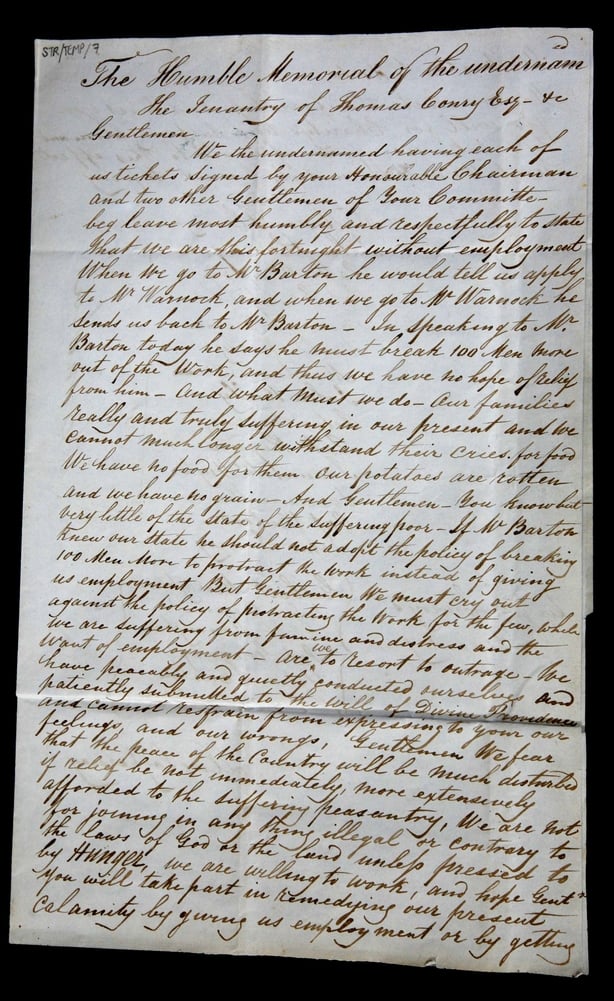 STR/TEMP/7
The Humble Memorial of the undernam
The Tenantry of Thomas Conry Esq - &c
Gentlemen
We the undernamed having each of
us tickets signed by your Honourable Chairman
and two other Gentlemen of Your Committe -
beg leave most humbly and respectfully to state
that we are this fortnight without employment
When we go to Mr Barton he would tell us apply
to Mr Warnock, and when we go to Mr Warnock he
sends us back to Mr Barton - In speaking to Mr
Barton today he says he must break 100 Men more
out of the Work, and thus we have no hope of relief
from him - And what must we do - Our families
really and truly suffering in our present and we
cannot much longer withstand their cries. for food
We have no food for them our potatoes are rotten
and we have no grain - And Gentlemen - You know but
very little of the state of the suffering poor - If Mr Barton
knew our state he should not adopt the policy of breaking
100 Men More to protract the work instead of giving
us employment But Gentlemen We must cry out
against the policy of protracting the Work for the few, while
we are suffering from famine and distress and the
Want of employment - are we to resort to outrage - We
have peacably and quietly conducted ourselves and
patiently submitted to the will of Divine Providence
and cannot refrain from expressing to your our
feelings, and our wrongs, Gentlemen We fear
that the peace of the Country will be much disturbed
if relief be not immediately, more extensively
afforded to the suffering peasantry, We are not
for joining in any thing illegal or contrary to
the laws of God or the land unless pressed to
by Hunger we are willing to work, and hope Gentn
You will take part in remedying our present
calamity by giving us employment or by getting